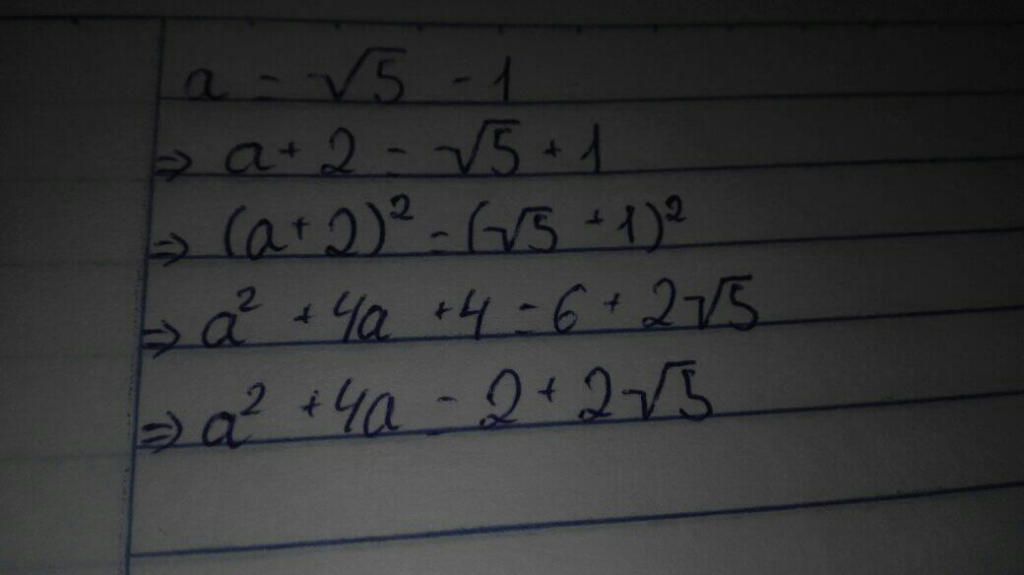 a = √5 - 1
⇒ a + 2 = √5 + 1
⇒ (a + 2)² = (√5 + 1)²
⇒ a² + 4a + 4 = 6 + 2√5
⇒ a² + 4a = 2 + 2√5